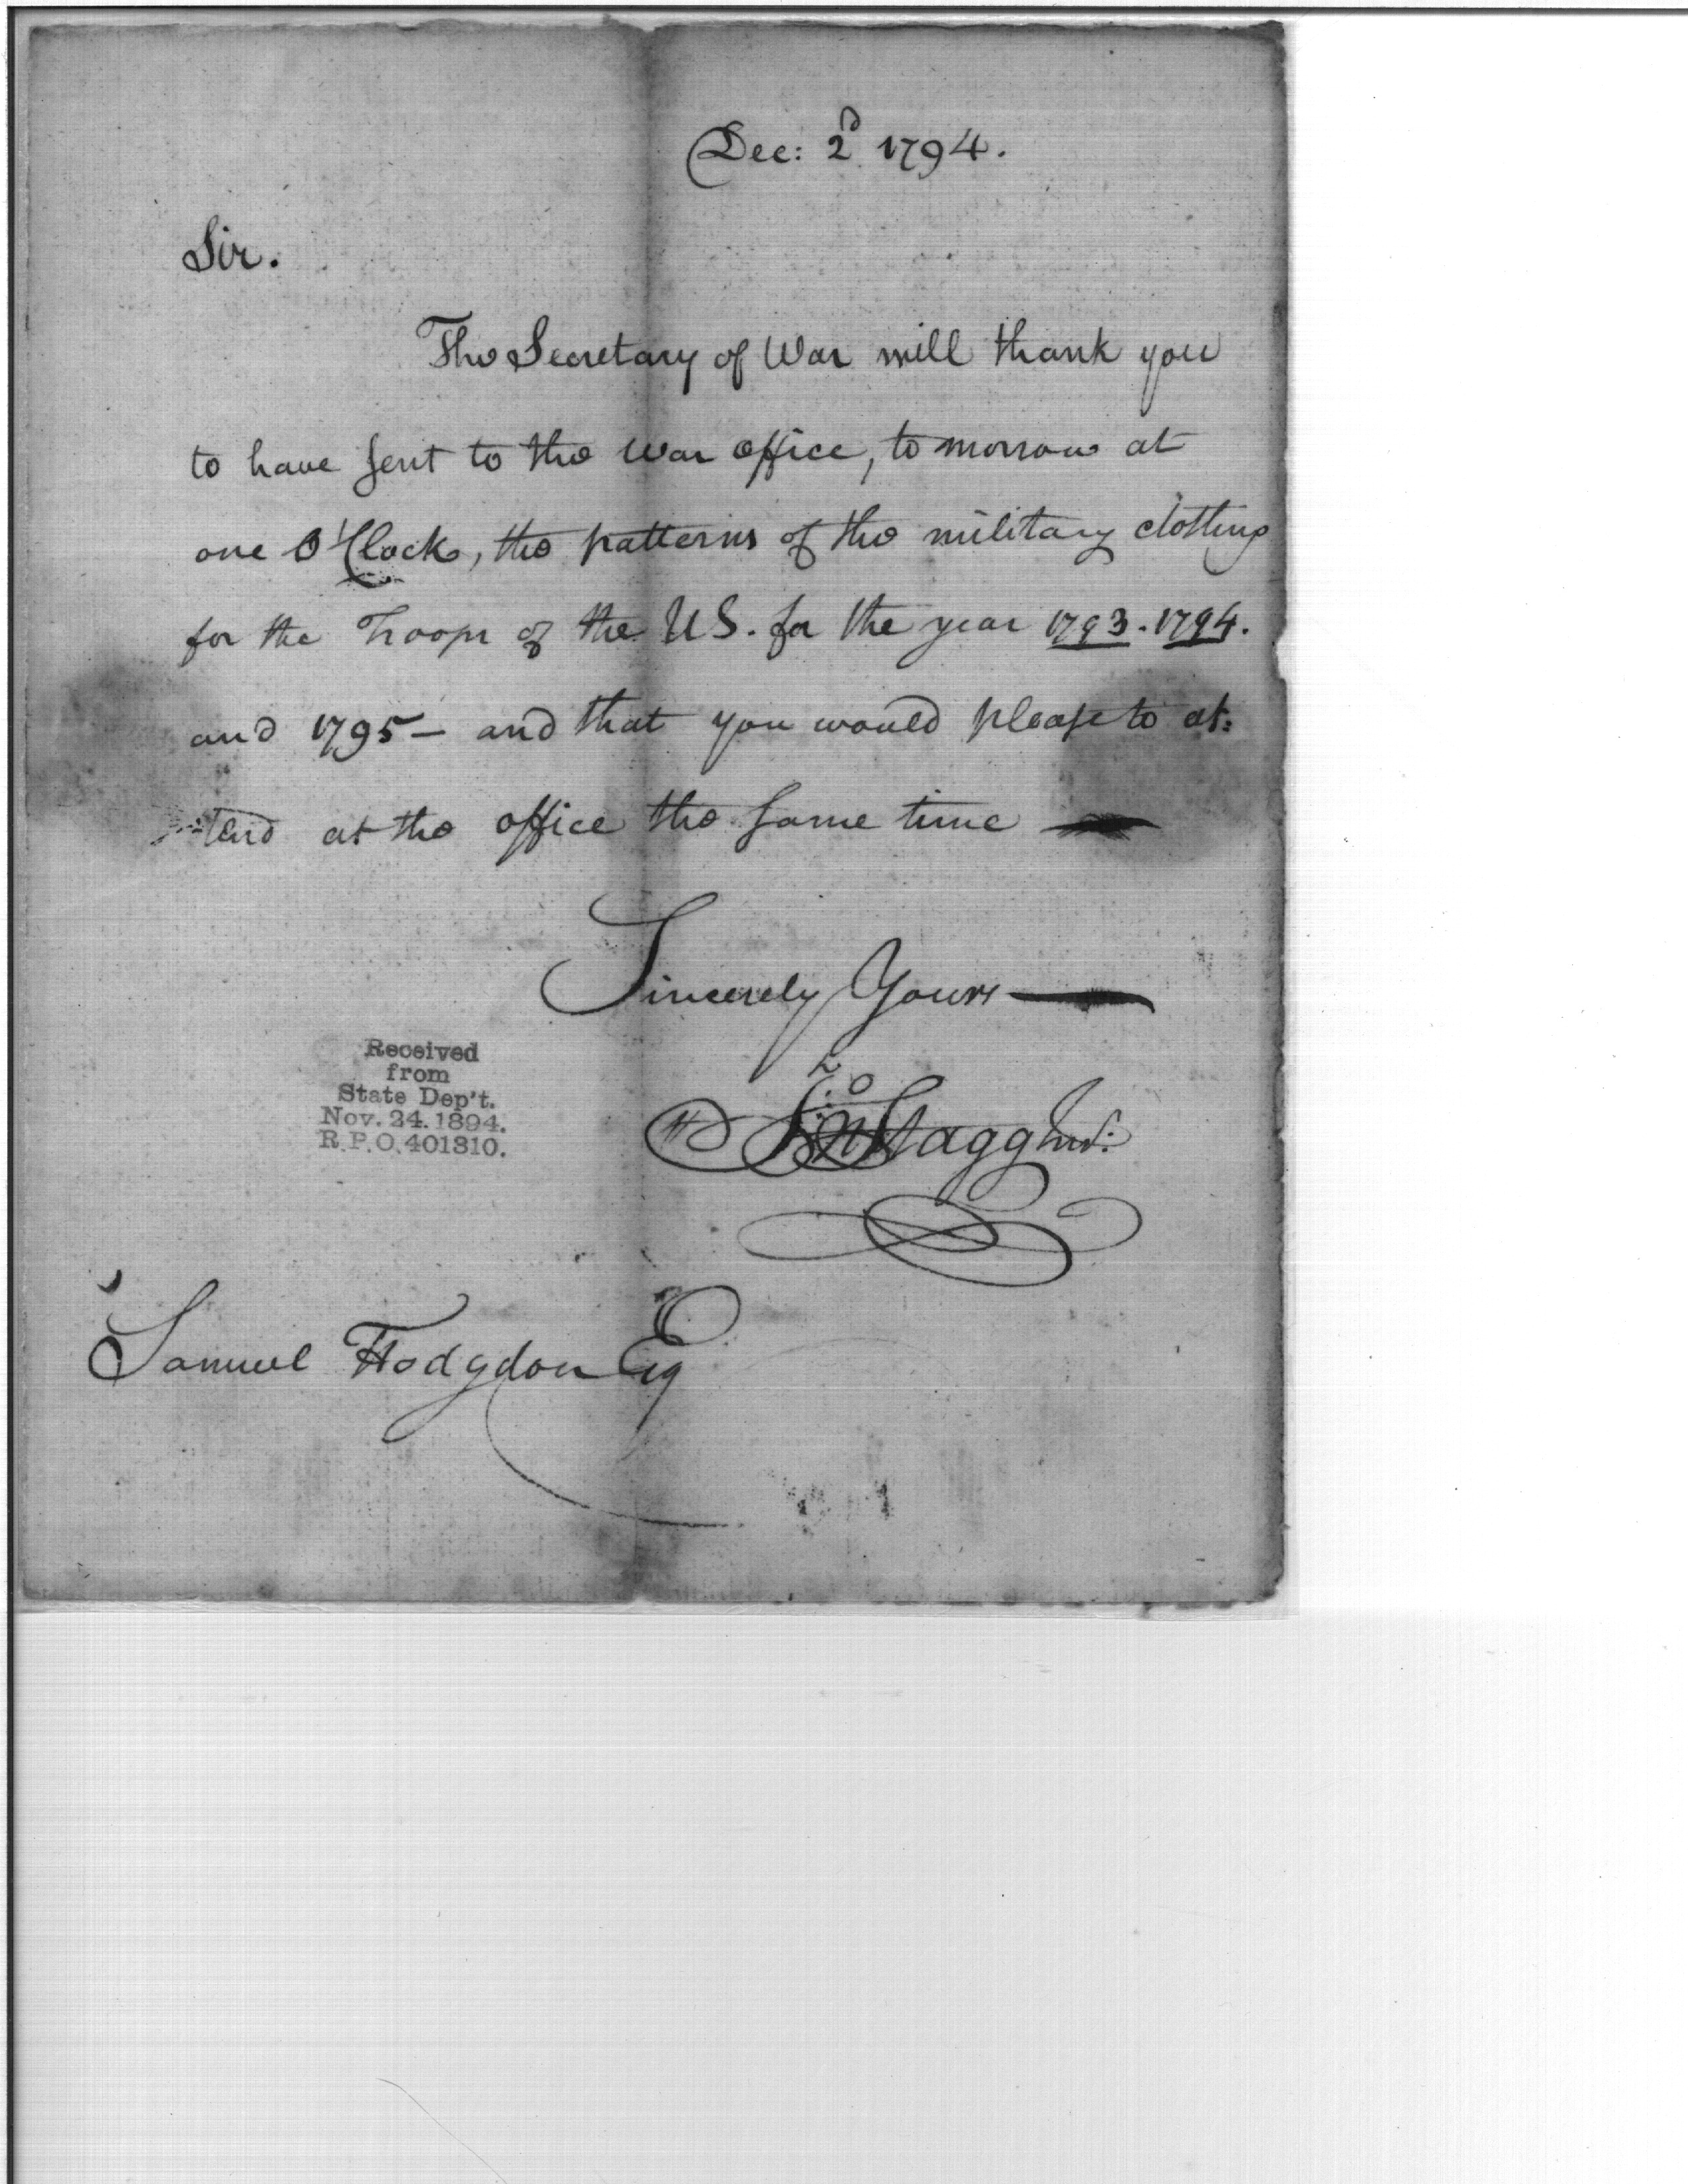 Dec: 2d 1794.
Sir.
The Secretary of War will thank you
to have sent to the war office, to morrow at
one O'Clock, the patterns of the military clothing
for the Troops of the US. for the year 1793. 1794.
and 1795 — and that you would please to at:
tend at the office the same time —
Sincerely Yours —
Jno Stagg Jnr:
Received
from
State Dep't.
Nov. 24. 1894.
R.P.O. 401310.
Samuel Hodgdon Esq